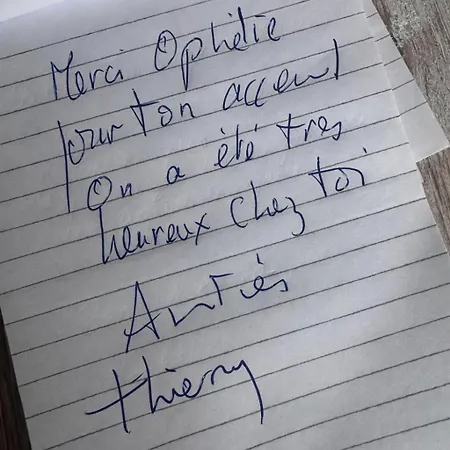 Merci Ophélie
pour ton acceuil
On a été tres
heureux chez toi
thierry